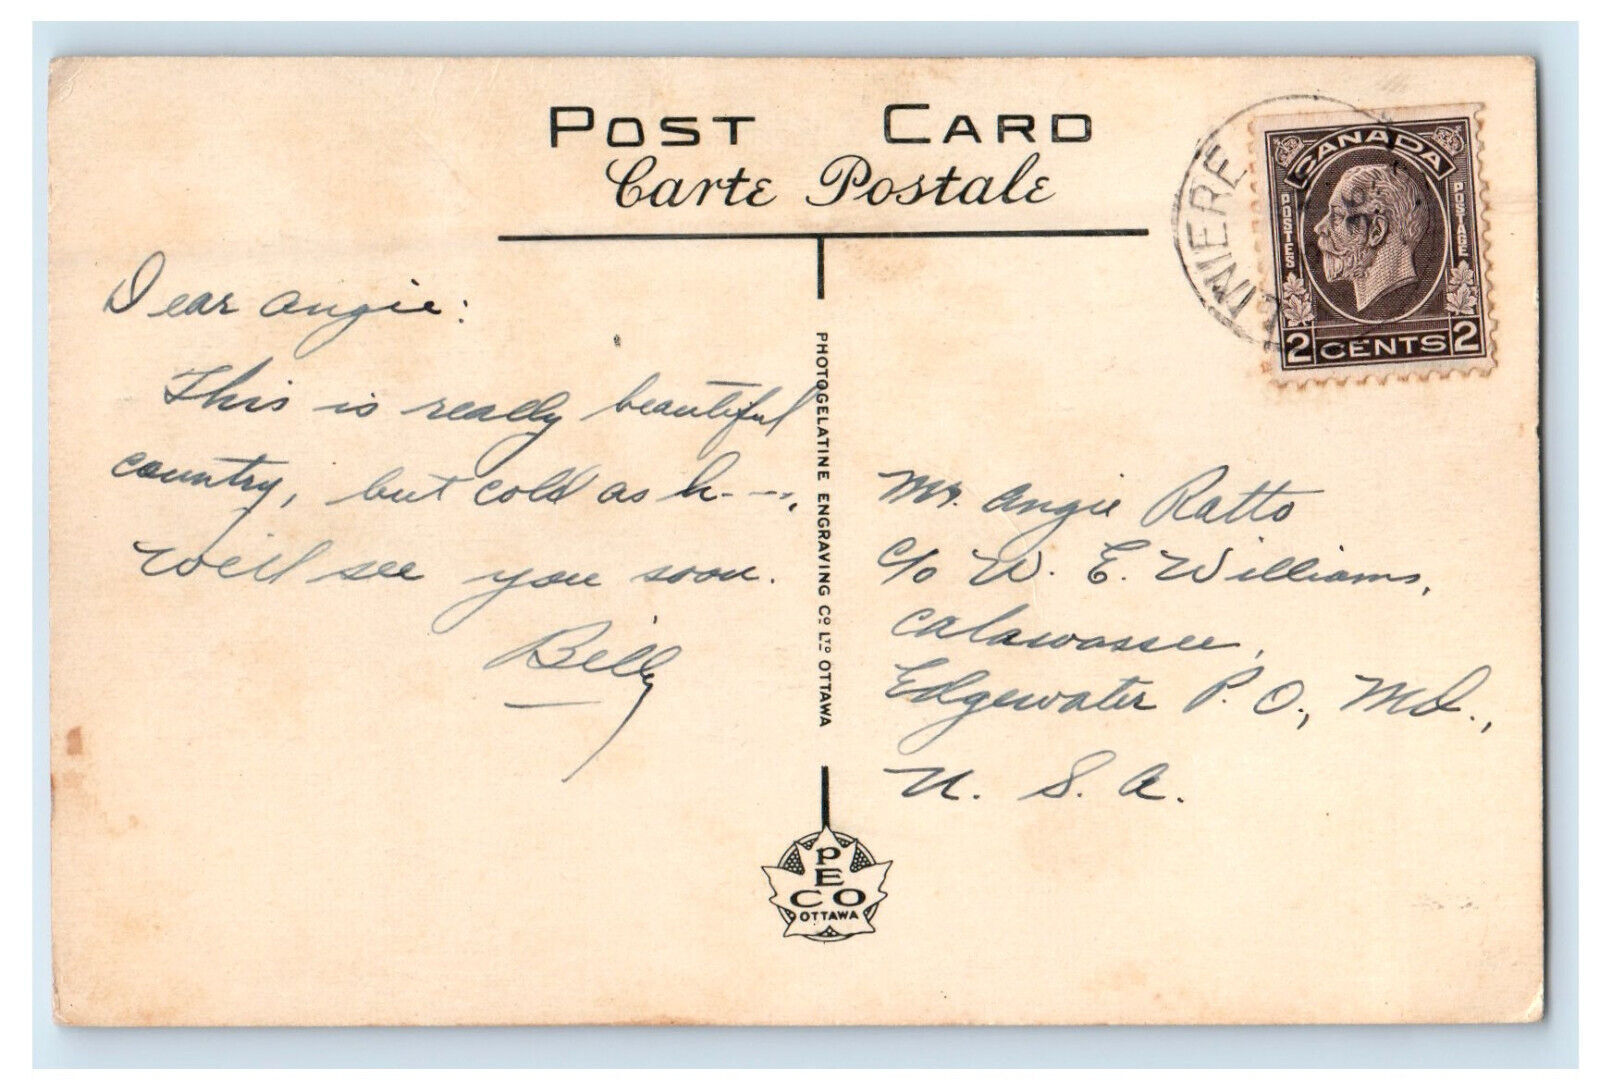 POST CARD
Carte Postale
LINIERE
36
CANADA
POSTES
POSTAGE
2 CENTS 2
Dear Angie:
This is really beautiful
country, but cold as h---.
We'll see you soon.
Billy
PHOTOGELATINE ENGRAVING Co LTD OTTAWA
Mr. Angie Ratto
c/o W. E. Williams,
Calawassee,
Edgewater P. O., Md.,
U. S. A.
PECO
OTTAWA